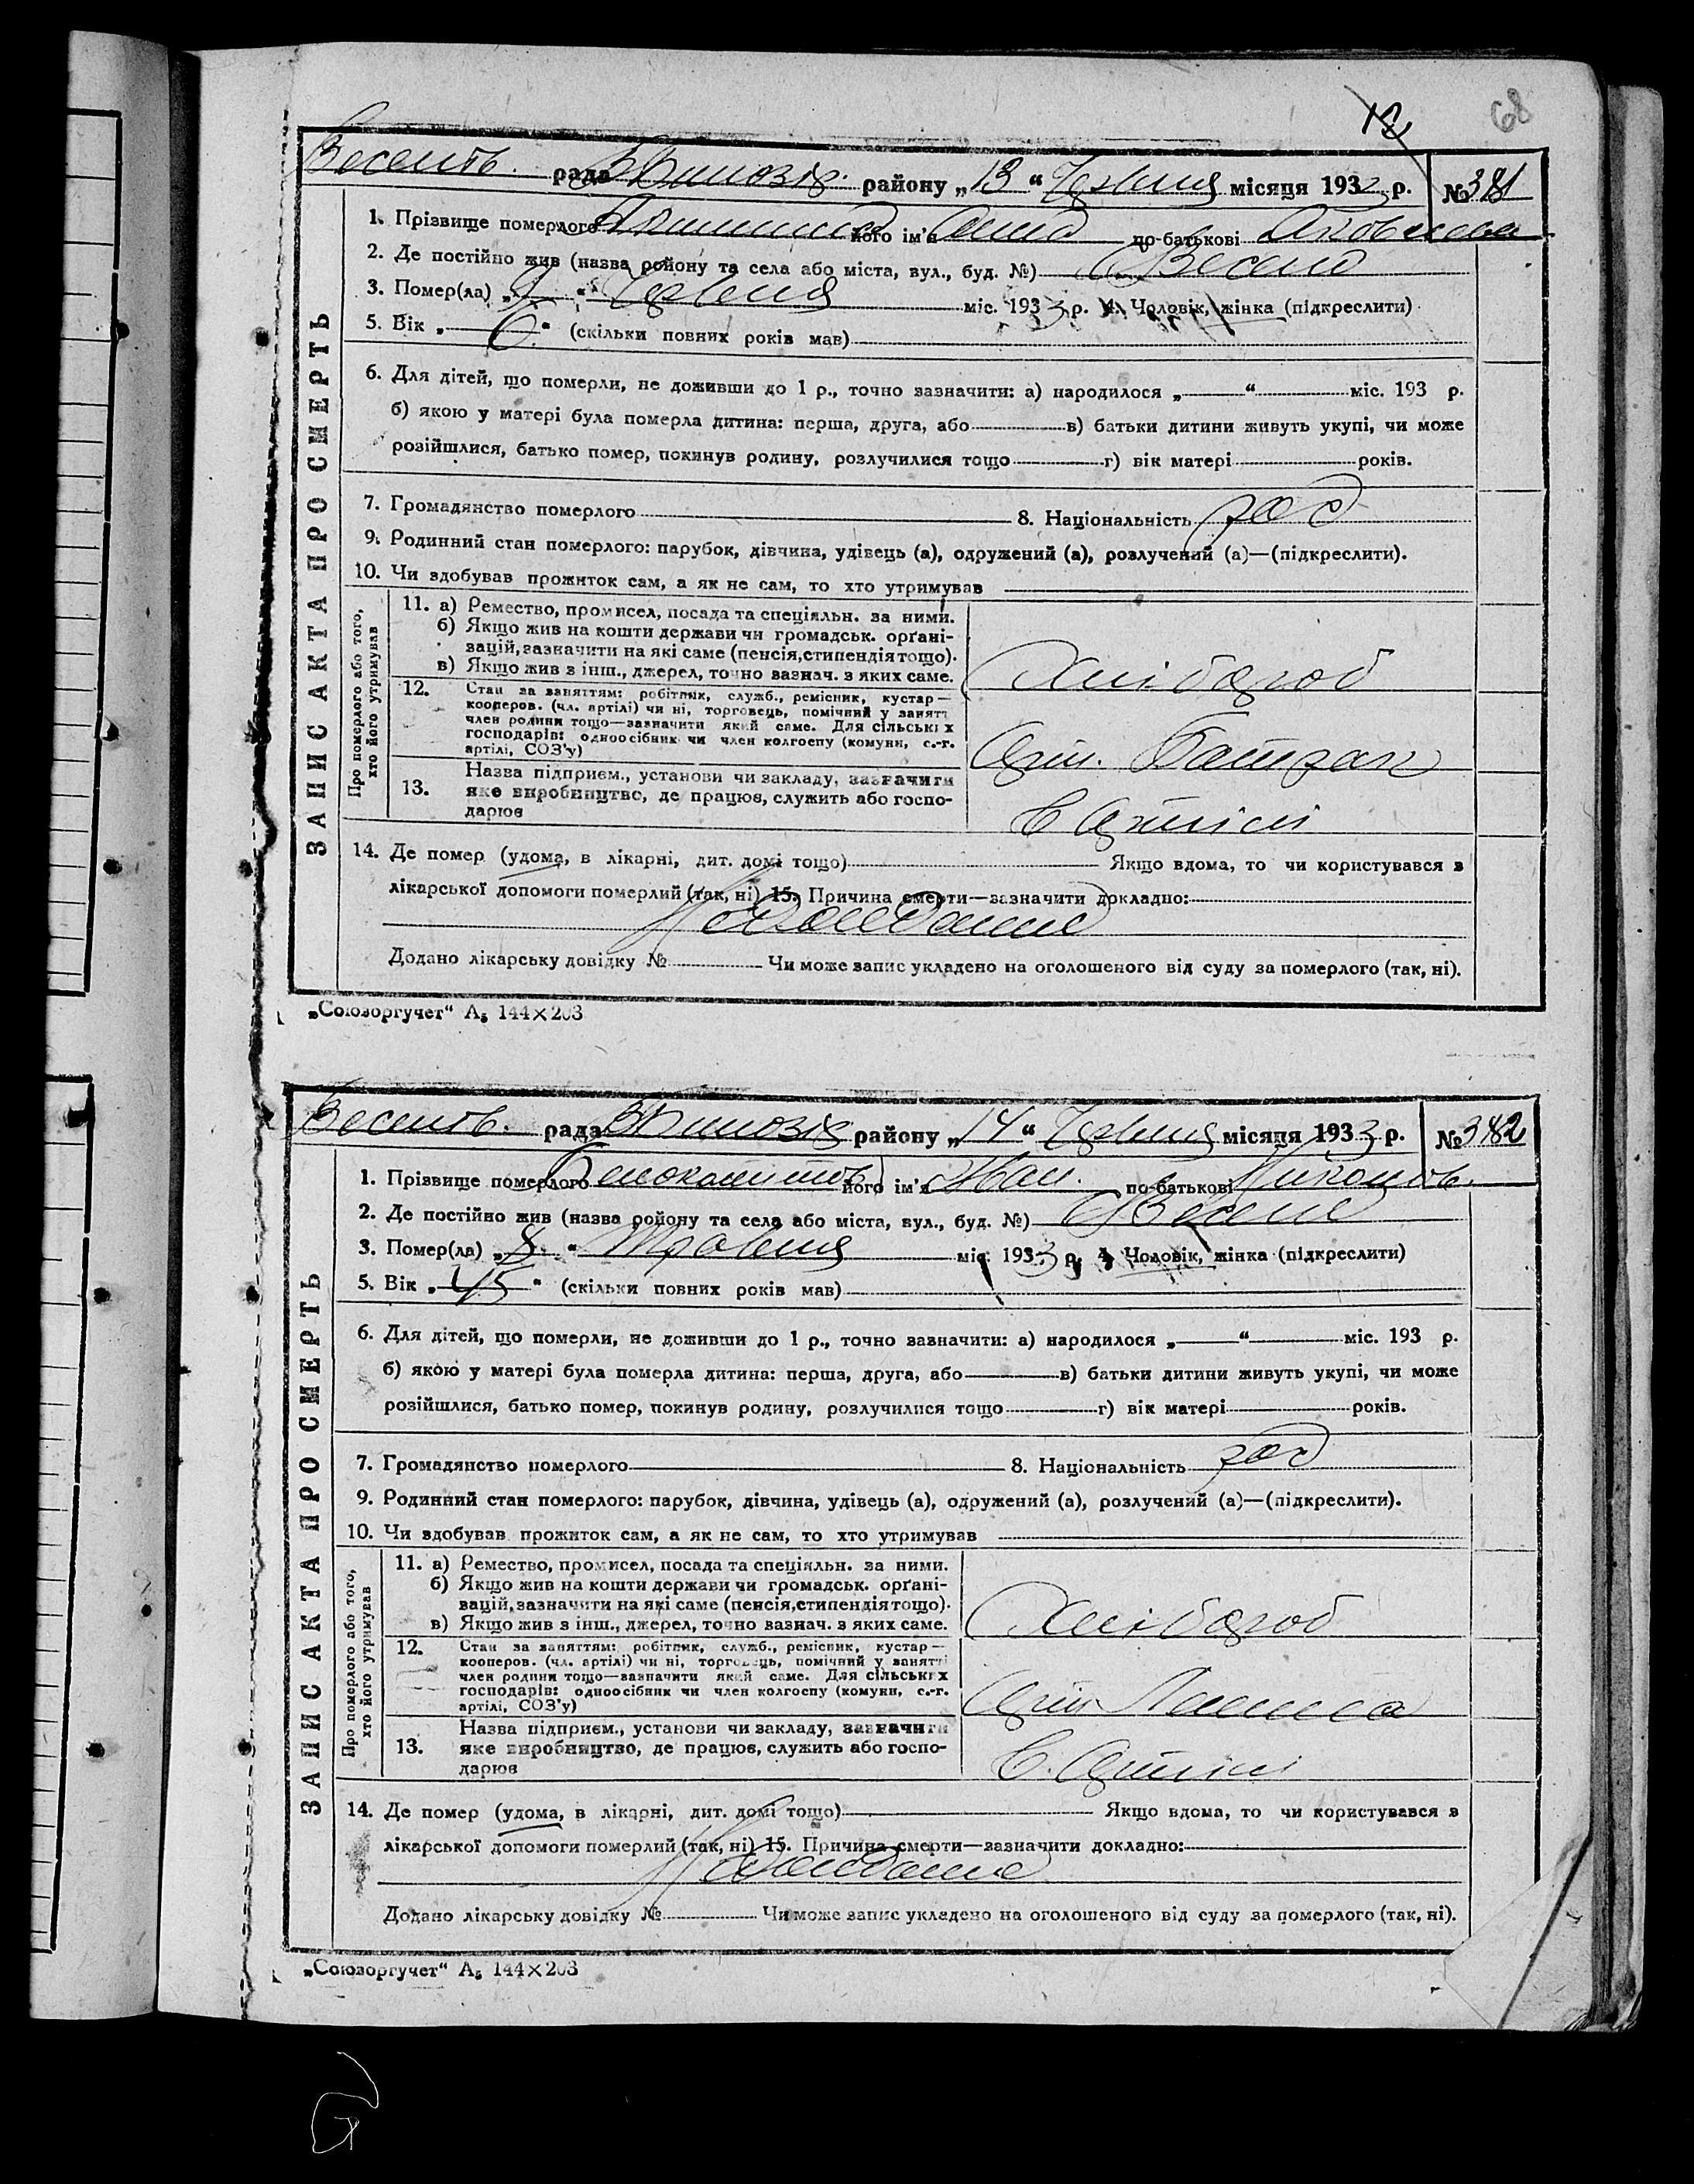 68
рада району „13“ Червня місяця 1933 р. №381
1. Прізвище померлого його ім'я Анна по-батькові Яковлевна
2. Де постійно жив (назва ройону та села або міста, вул., буд. №)
3. Помер(ла) „ “ Червня міс. 1933 р. 4. Чоловік, жінка (підкреслити)
5. Вік „6“ (скільки повних років мав)
6. Для дітей, що померли, не доживши до 1 р., точно зазначити: а) народилося „ “ міс. 193 р.
б) якою у матері була померла дитина: перша, друга, або в) батьки дитини живуть укупі, чи може
розійшлися, батько помер, покинув родину, розлучилися тощо г) вік матері років.
7. Громадянство померлого 8. Національність
9. Родинний стан померлого: парубок, дівчина, удівець (а), одружений (а), розлучений (а)—(підкреслити).
10. Чи здобував прожиток сам, а як не сам, то хто утримував
ЗАПИС АКТА ПРО СМЕРТЬ
Про померлого або того,
хто його утримував
11. а) Ремество, промисел, посада та спеціяльн. за ними.
б) Якщо жив на кошти держави чи громадськ. орґані-
зацій, зазначити на які саме (пенсія, стипендія тощо).
в) Якщо жив з інш., джерел, точно зазнач. з яких саме. Хлібороб
12. Стан за заняттям: робітник, служб., ремісник, кустар—
кооперов. (чл. артілі) чи ні, торговець, помічний у занятт
член родини тощо—зазначити який саме. Для сільських
господарів: одноосібник чи член колгоспу (комуни, с.-г.
артілі, СОЗ'у) Батрак
13. Назва підприєм., установи чи закладу, зазначити
яке виробництво, де працює, служить або госпо-
дарює В Артілі
14. Де помер (удома, в лікарні, дит. домі тощо) Якщо вдома, то чи користувався з
лікарської допомоги померлий (так, ні) 15. Причина смерти—зазначити докладно:
Додано лікарську довідку № Чи може запис укладено на оголошеного від суду за померлого (так, ні).
„Союзоргучет“ А5 144×203
рада району „14“ Червня місяця 1933 р. №382
1. Прізвище померлого його ім'я Иван по-батькові
2. Де постійно жив (назва ройону та села або міста, вул., буд. №)
3. Помер(ла) „ “ Травня міс. 1933 р. 4. Чоловік, жінка (підкреслити)
5. Вік „45“ (скільки повних років мав)
6. Для дітей, що померли, не доживши до 1 р., точно зазначити: а) народилося „ “ міс. 193 р.
б) якою у матері була померла дитина: перша, друга, або в) батьки дитини живуть укупі, чи може
розійшлися, батько помер, покинув родину, розлучилися тощо г) вік матері років.
7. Громадянство померлого 8. Національність
9. Родинний стан померлого: парубок, дівчина, удівець (а), одружений (а), розлучений (а)—(підкреслити).
10. Чи здобував прожиток сам, а як не сам, то хто утримував
ЗАПИС АКТА ПРО СМЕРТЬ
Про померлого або того,
хто його утримував
11. а) Ремество, промисел, посада та спеціяльн. за ними.
б) Якщо жив на кошти держави чи громадськ. орґані-
зацій, зазначити на які саме (пенсія, стипендія тощо).
в) Якщо жив з інш., джерел, точно зазнач. з яких саме. Хлібороб
12. Стан за заняттям: робітник, служб., ремісник, кустар—
кооперов. (чл. артілі) чи ні, торговець, помічний у занятті
член родини тощо—зазначити який саме. Для сільських
господарів: одноосібник чи член колгоспу (комуни, с.-г.
артілі, СОЗ'у)
13. Назва підприєм., установи чи закладу, зазначити
яке виробництво, де працює, служить або госпо-
дарює В. Артілі
14. Де помер (удома, в лікарні, дит. домі тощо) Якщо вдома, то чи користувався з
лікарської допомоги померлий (так, ні) 15. Причина смерти—зазначити докладно:
Додано лікарську довідку № Чи може запис укладено на оголошеного від суду за померлого (так, ні).
„Союзоргучет“ А5 144×203